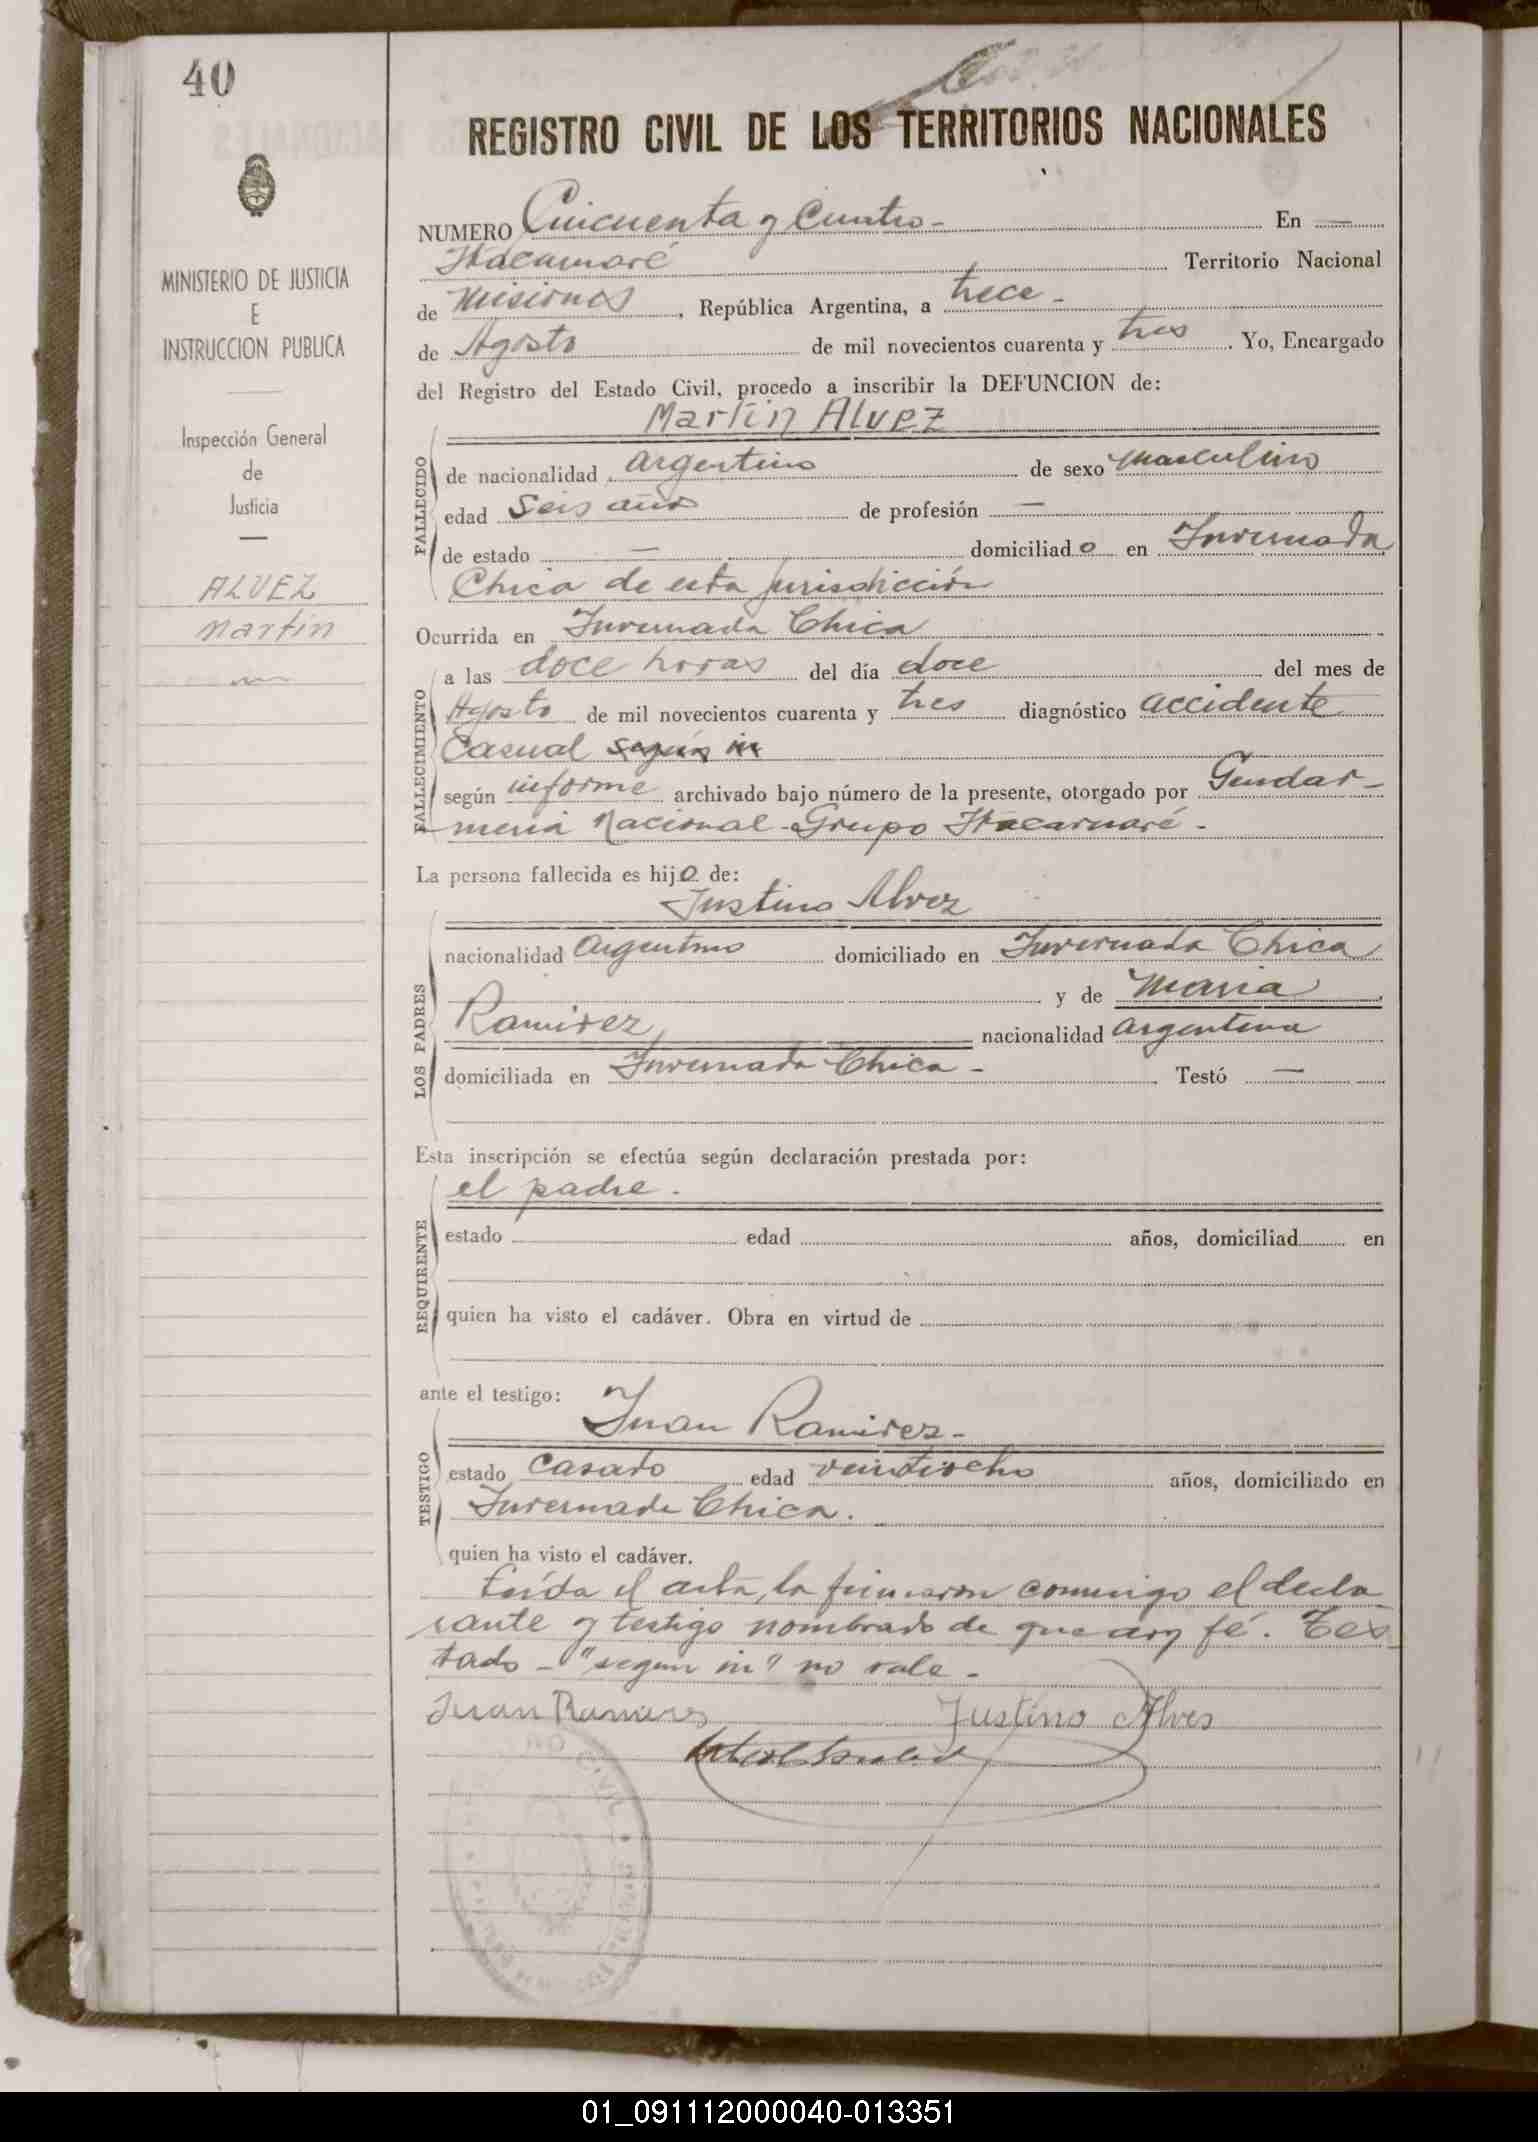 40
REGISTRO CIVIL DE LOS TERRITORIOS NACIONALES
MINISTERIO DE JUSTICIA
E
INSTRUCCION PUBLICA
Inspección General
de
Justicia
ALVEZ
Martin
NUMERO Cuicuenta y Cuatro - En —
Itacaruaré Territorio Nacional
de Misiones, República Argentina, a trece -
de Agosto de mil novecientos cuarenta y tres. Yo, Encargado
del Registro del Estado Civil, procedo a inscribir la DEFUNCION de:
Martin Alvez
FALLECIDO
de nacionalidad argentino de sexo masculino
edad Seis años de profesión —
de estado — domiciliado en Invernada
Chica de esta jurisdicción
Ocurrida en Invernada Chica
FALLECIMIENTO
a las doce horas del día doce del mes de
Agosto de mil novecientos cuarenta y tres diagnóstico accidente
Casual según in
según informe archivado bajo número de la presente, otorgado por Gendar-
meria Nacional - Grupo Itacaruaré -
La persona fallecida es hijo de:
Justino Alvez
LOS PADRES
nacionalidad argentino domiciliado en Invernada Chica
y de Maria
Ramirez nacionalidad argentina
domiciliada en Invernada Chica - Testó —
Esta inscripción se efectúa según declaración prestada por:
el padre.
REQUIRENTE
estado edad años, domiciliad en
quien ha visto el cadáver. Obra en virtud de
ante el testigo:
Juan Ramirez -
TESTIGO
estado Casado edad veintiocho años, domiciliado en
Invernada Chica.
quien ha visto el cadáver.
Leída el acta, la firmaron conmigo el decla
rante y testigo nombrado de que doy fé. Tes-
tado - "segun in" no vale -
Juan Ramires Justino Alves
01_091112000040-013351